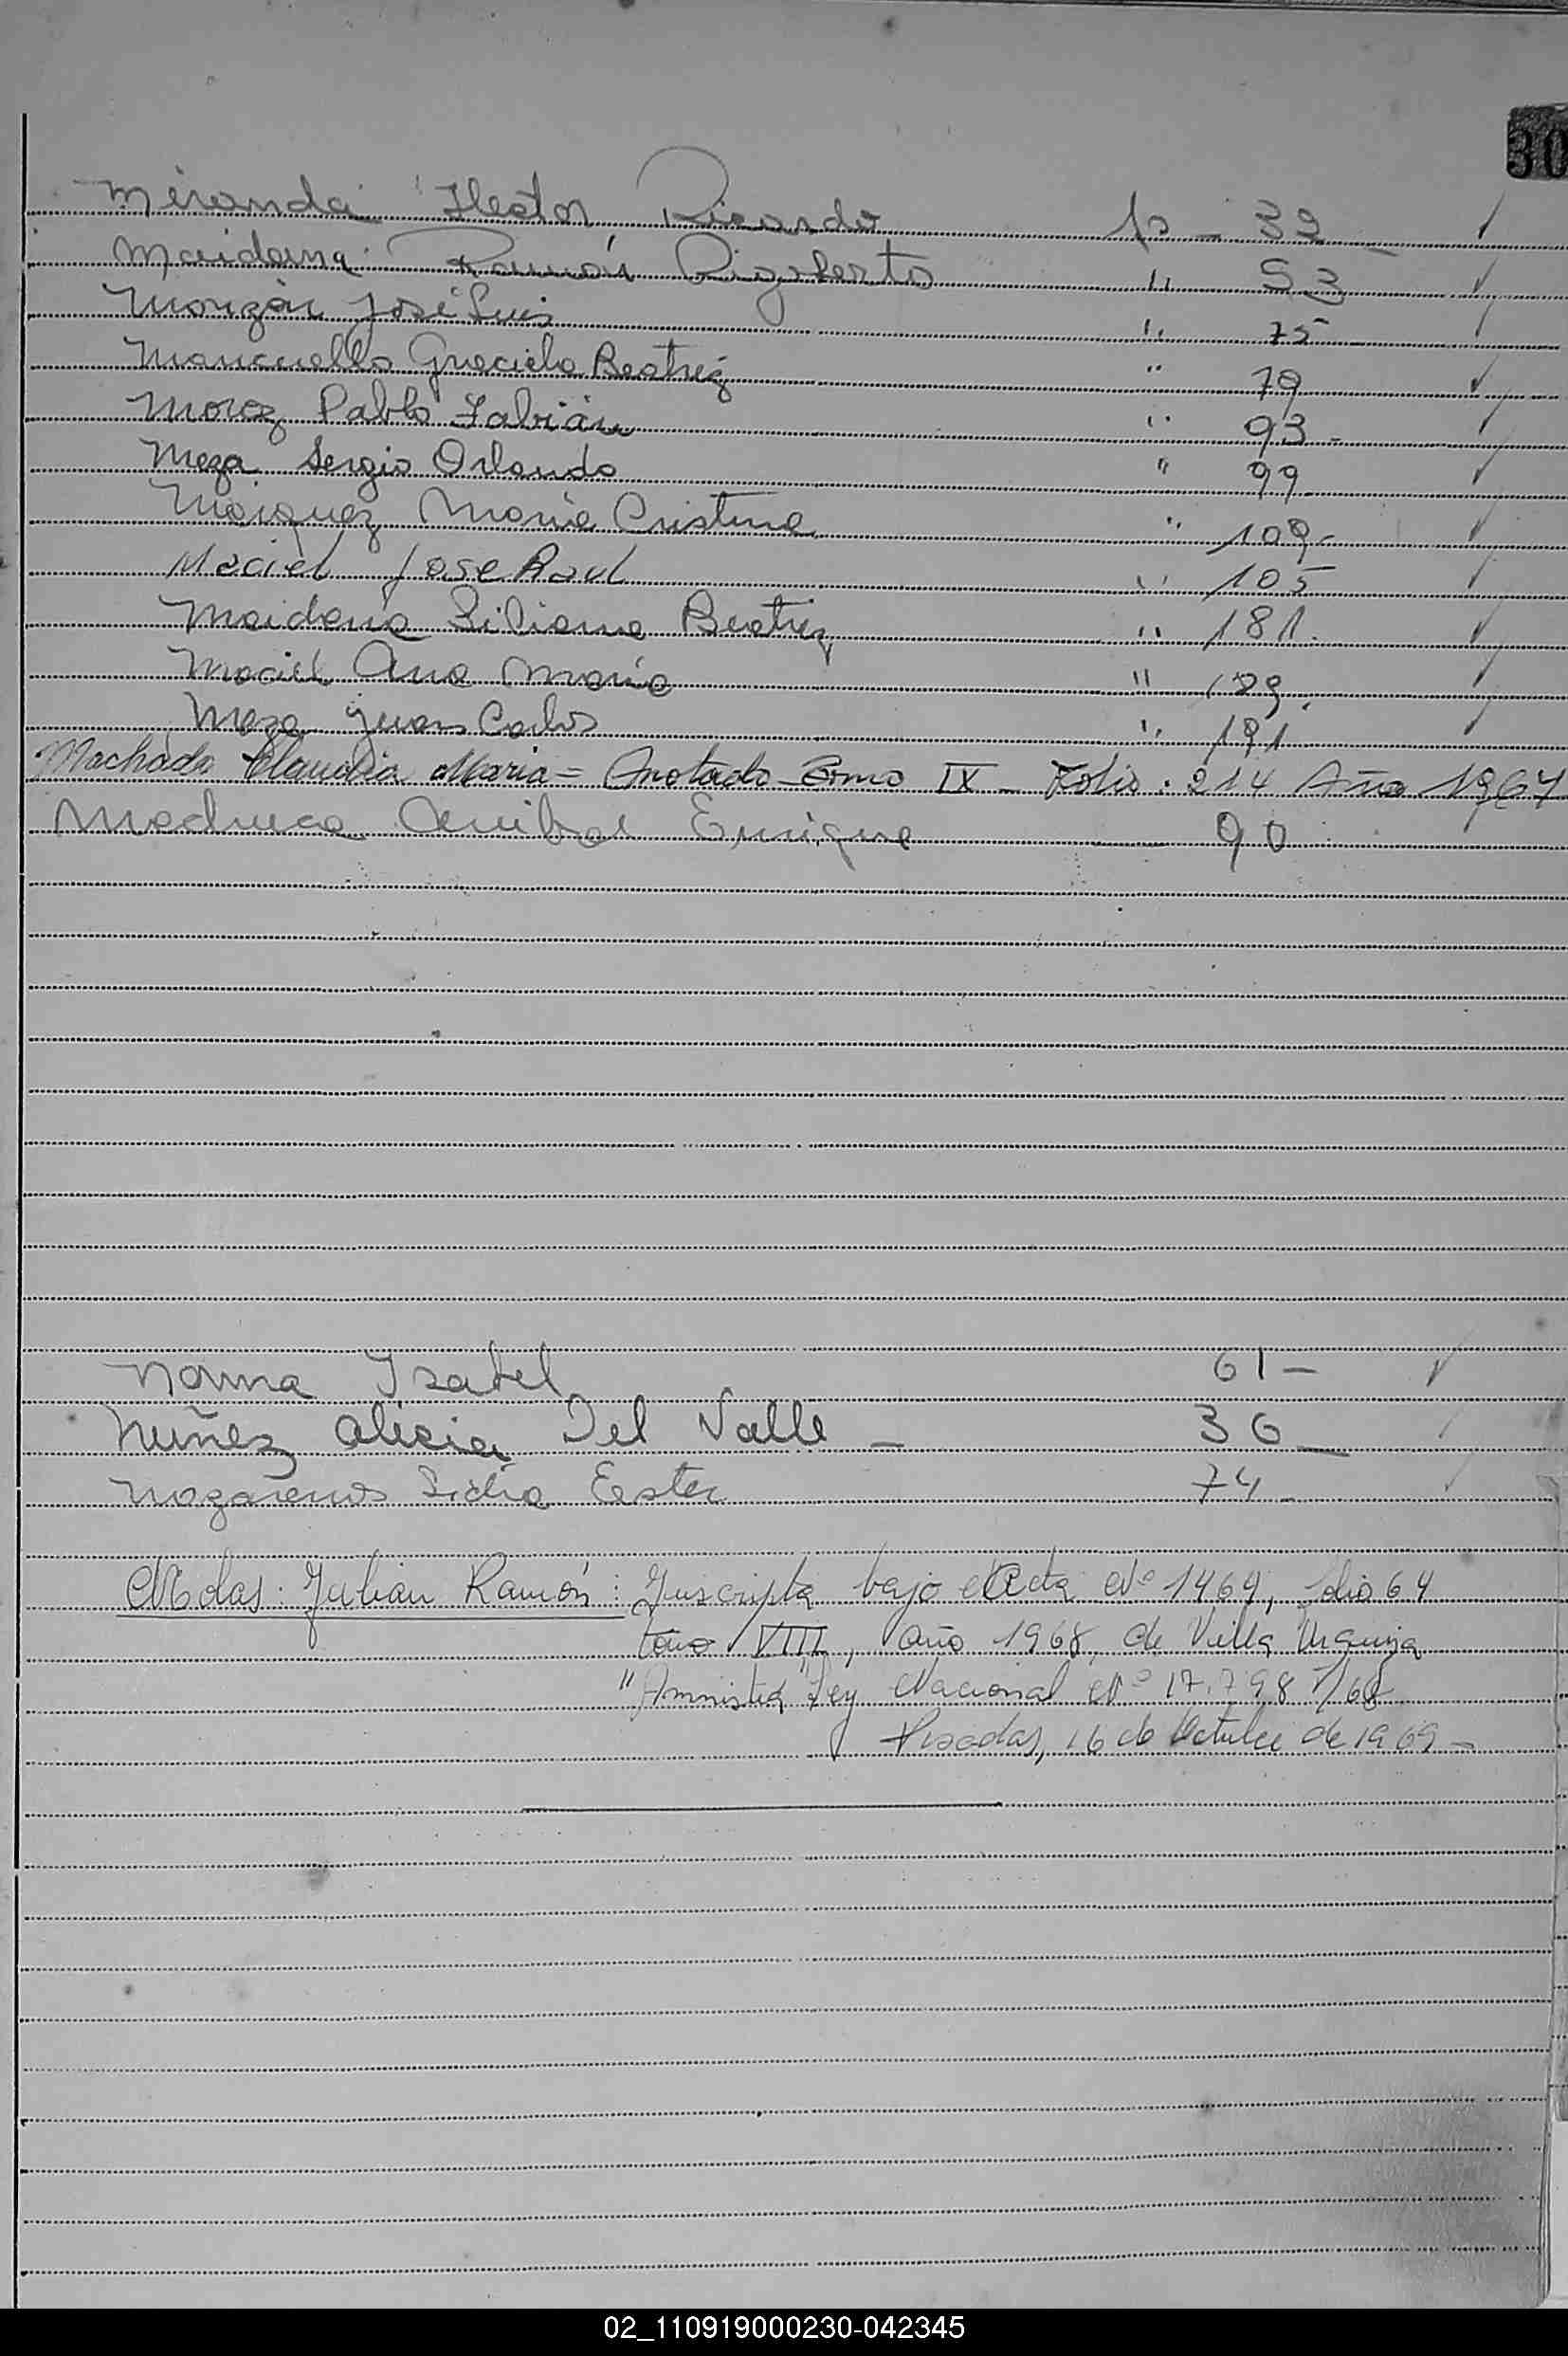 30
Miranda Hector Ricardo fo - 32 -
Maidana Ramón Rigoberto " 53
Monzón José Luis " 75
Mancuello Graciela Beatriz " 79
Pablo Fabián " 93 -
Meza Sergio Orlando " 99
Marquez María Cristina " 109 -
Maciel Jose Raul " 105
Maidana Liliana Beatriz " 181.
Maciel Ana María " 189.
Meza Juan Carlos " 191
Machado Claudia Maria = Anotado Tomo IX - Folio. 214 Año 1967
Machuca Anibal Enrique 90
Norma Isabel 61 -
Nuñez Alicia Del Valle - 36 -
Nazareno Lidia Ester 74 -
Julian Ramón: Inscripta bajo Acta Nº 1469, folio 64
tomo VIII, año 1968, de Villa Urquiza
"Amnistia" Ley Nacional Nº 17.798 /68
Posadas, 16 de Octubre de 1969 -
02_110919000230-042345